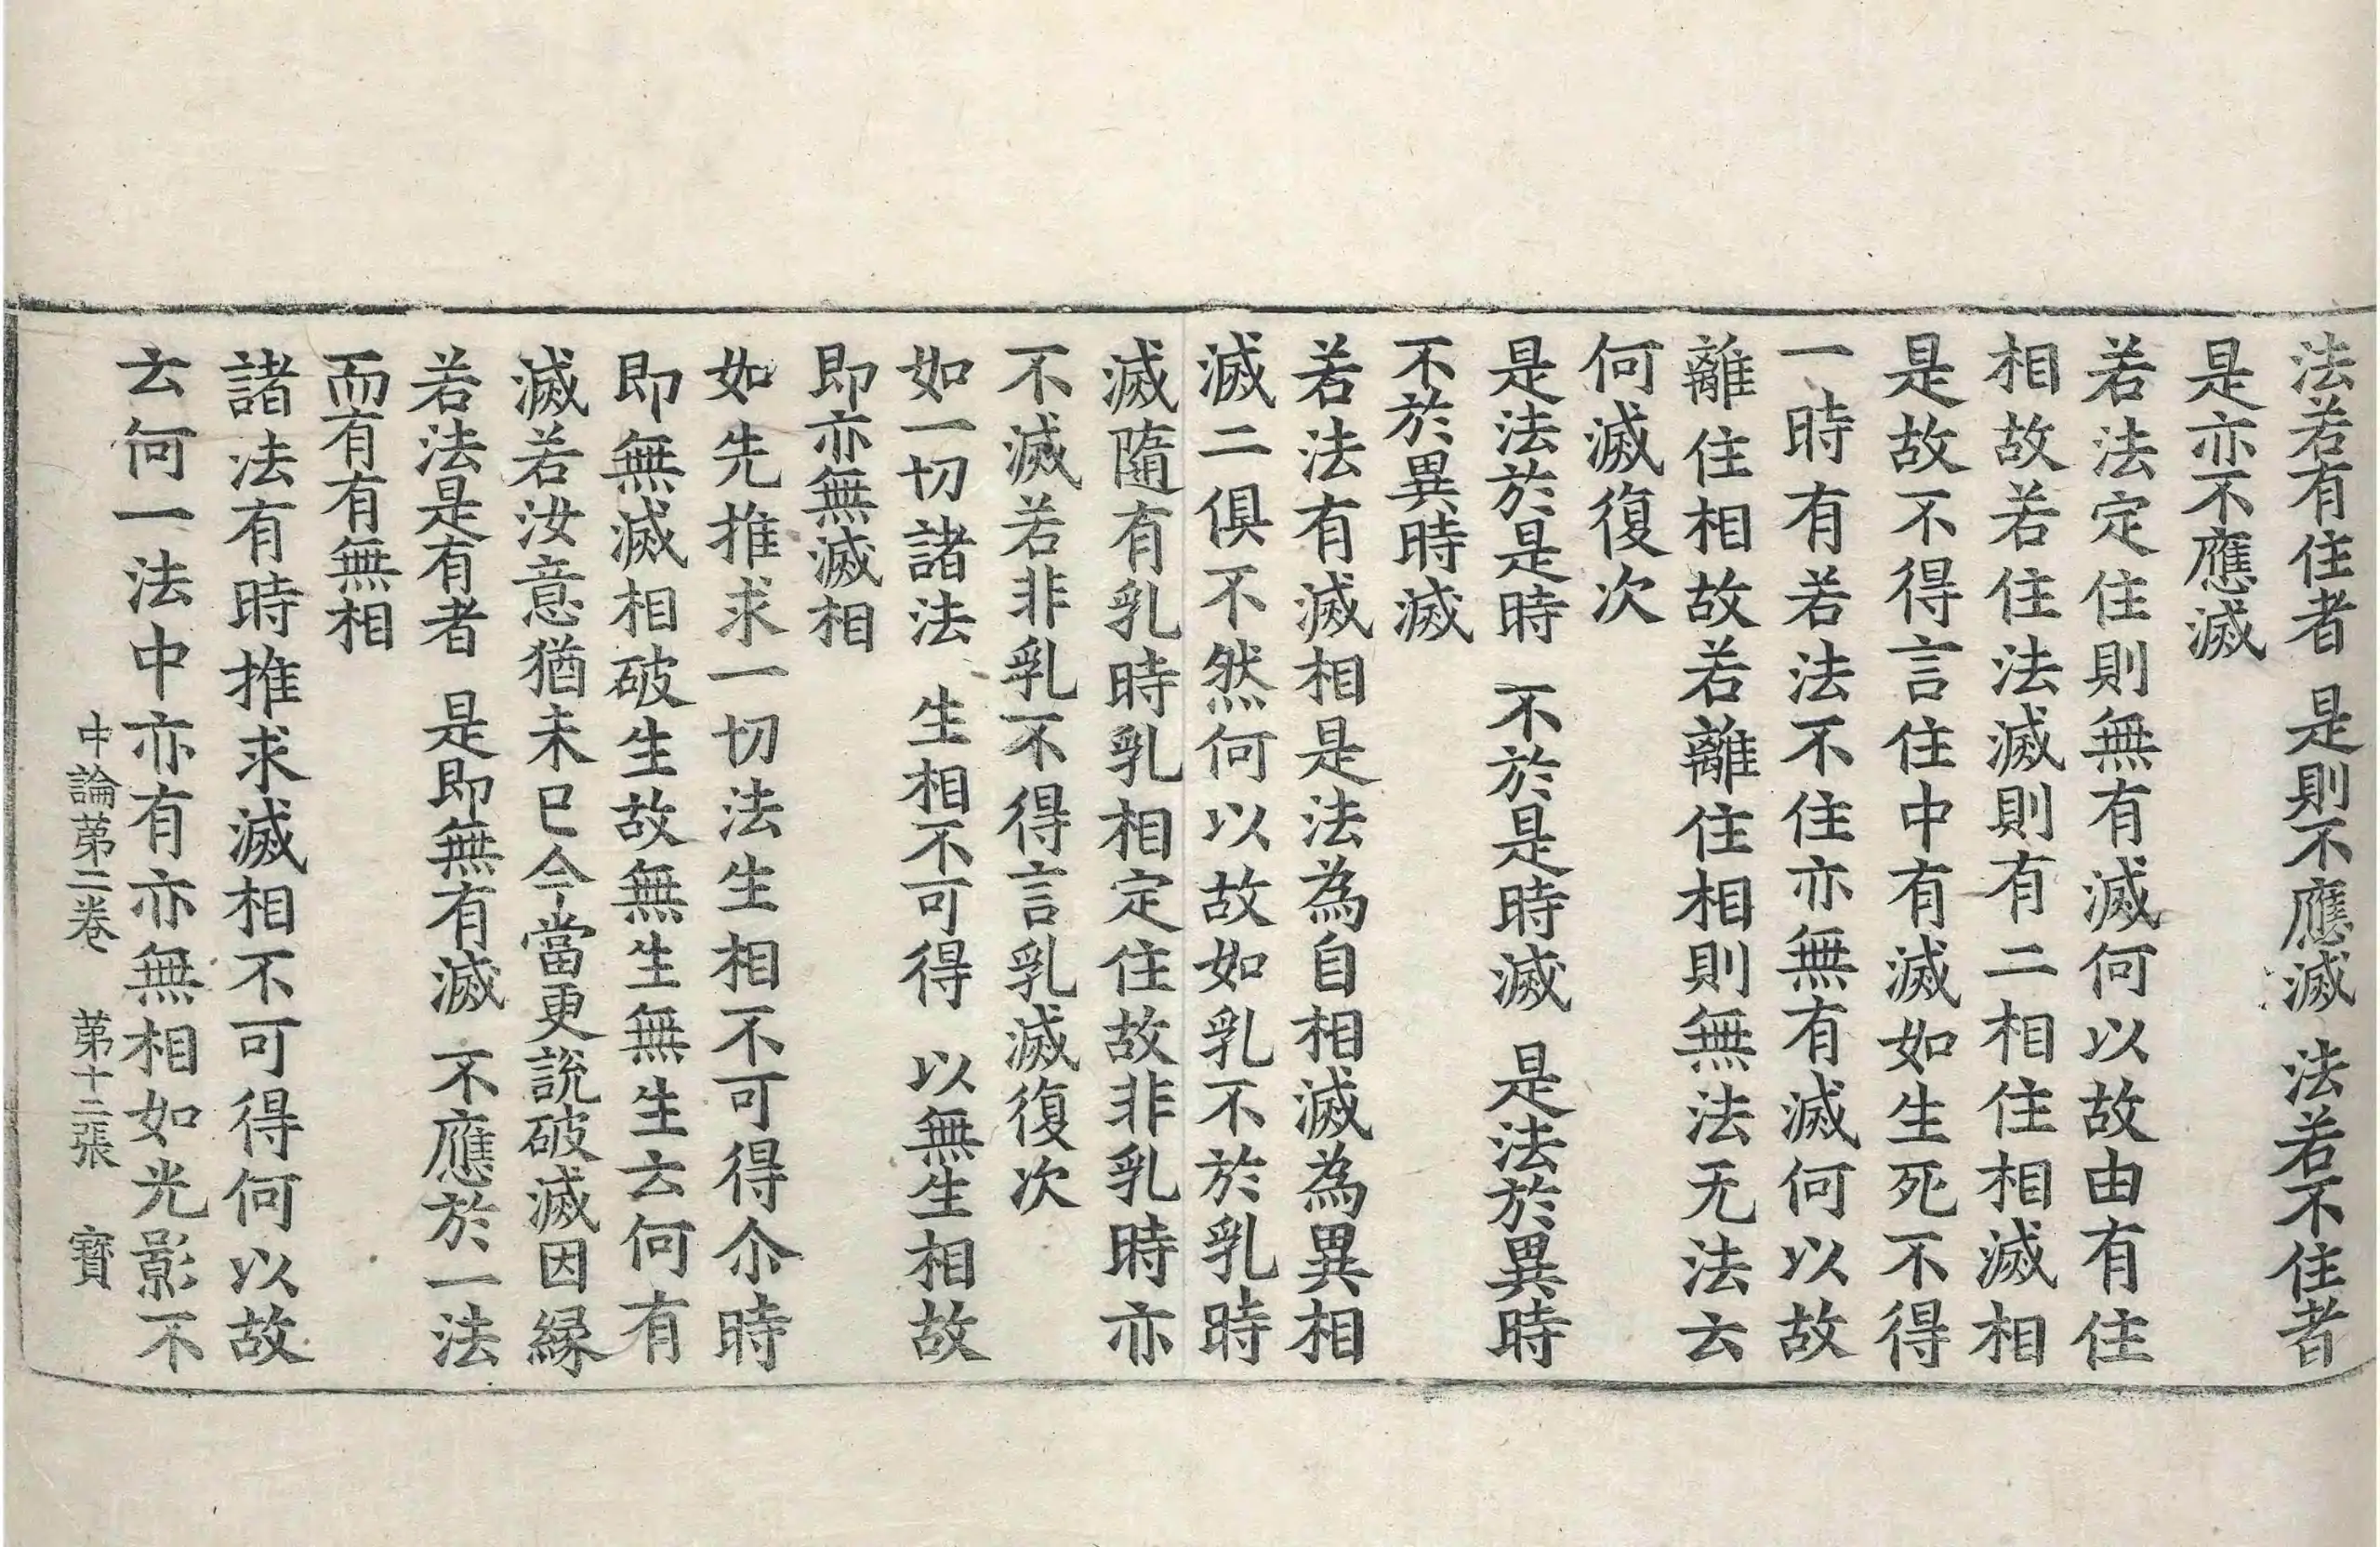 法若有住者　是則不應滅　法若不住者
是亦不應滅
若法定住則無有滅何以故由有住
相故若住法滅則有二相住相滅相
是故不得言住中有滅如生死不得
一時有若法不住亦無有滅何以故
離住相故若離住相則無法无法云
何滅復次
是法於是時　不於是時滅　是法於異時
不於異時滅
若法有滅相是法為自相滅為異相
滅二俱不然何以故如乳不於乳時
滅隨有乳時乳相定住故非乳時亦
不滅若非乳不得言乳滅復次
如一切諸法　生相不可得　以無生相故
即亦無滅相
如先推求一切法生相不可得尒時
即無滅相破生故無生無生云何有
滅若汝意猶未已今當更說破滅因緣
若法是有者　是即無有滅　不應於一法
而有有無相
諸法有時推求滅相不可得何以故
云何一法中亦有亦無相如光影不
中論第二卷　第十二張　寶